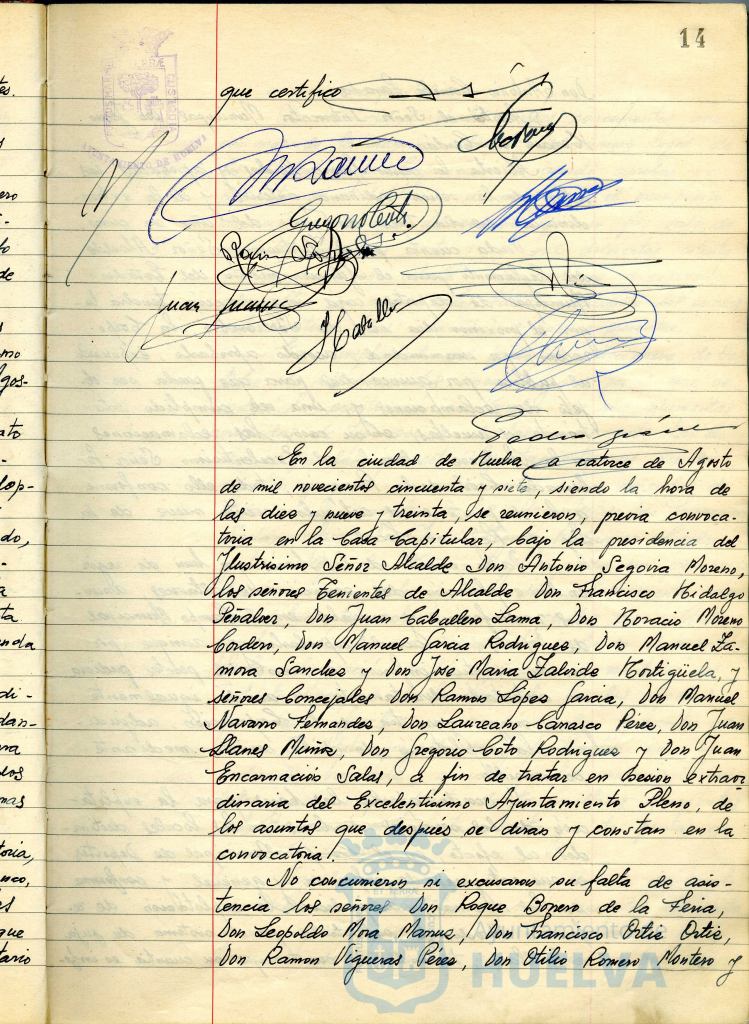 14
AYUNTAMIENTO DE HUELVA
que certifico
Pedro
En la ciudad de Huelva, a catorce de Agosto
de mil novecientos cincuenta y siete, siendo la hora de
las diez y nueve y treinta, se reunieron, previa convoca-
toria en la Casa Capitular, bajo la presidencia del
Ilustrisimo Señor Alcalde Don Antonio Segovia Moreno,
los señores Tenientes de Alcalde Don Francisco Hidalgo
Peñalver, Don Juan Caballero Lama, Don Horacio Moreno
Cordero, Don Manuel Garcia Rodriguez, Don Manuel Za-
mora Sanchez y Don José Maria Zalvide Hortigüela, y
señores Concejales Don Ramon López Garcia, Don Manuel
Navarro Fernandez, Don Laureano Carrasco Pérez, Don Juan
Llanes Muñoz, Don Gregorio Coto Rodriguez y Don Juan
Encarnación Salas, a fin de tratar en sesion extraor
dinaria del Excelentisimo Ayuntamiento Pleno, de
los asuntos que después se dirán y constan en la
convocatoria.
No concurrieron ni excusaron su falta de asis-
tencia los señores Don Roque Borrero de la Feria,
Don Leopoldo Mora Don Francisco Ortiz Ortiz,
Don Ramon Vigueras Pérez, Don Otilio Romero Montero y
HUELVA